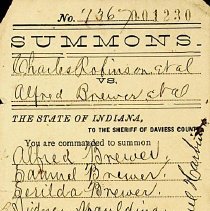 No. 7367 001230
SUMMONS.
Charles Robinson et al
VS.
Alfred Brewer et al
THE STATE OF INDIANA,
TO THE SHERIFF OF DAVIESS COUNT
You are commanded to summon
Alfred Brewer,
Samuel Brewer,
Serilda Brewer,
Sidney Spaulding